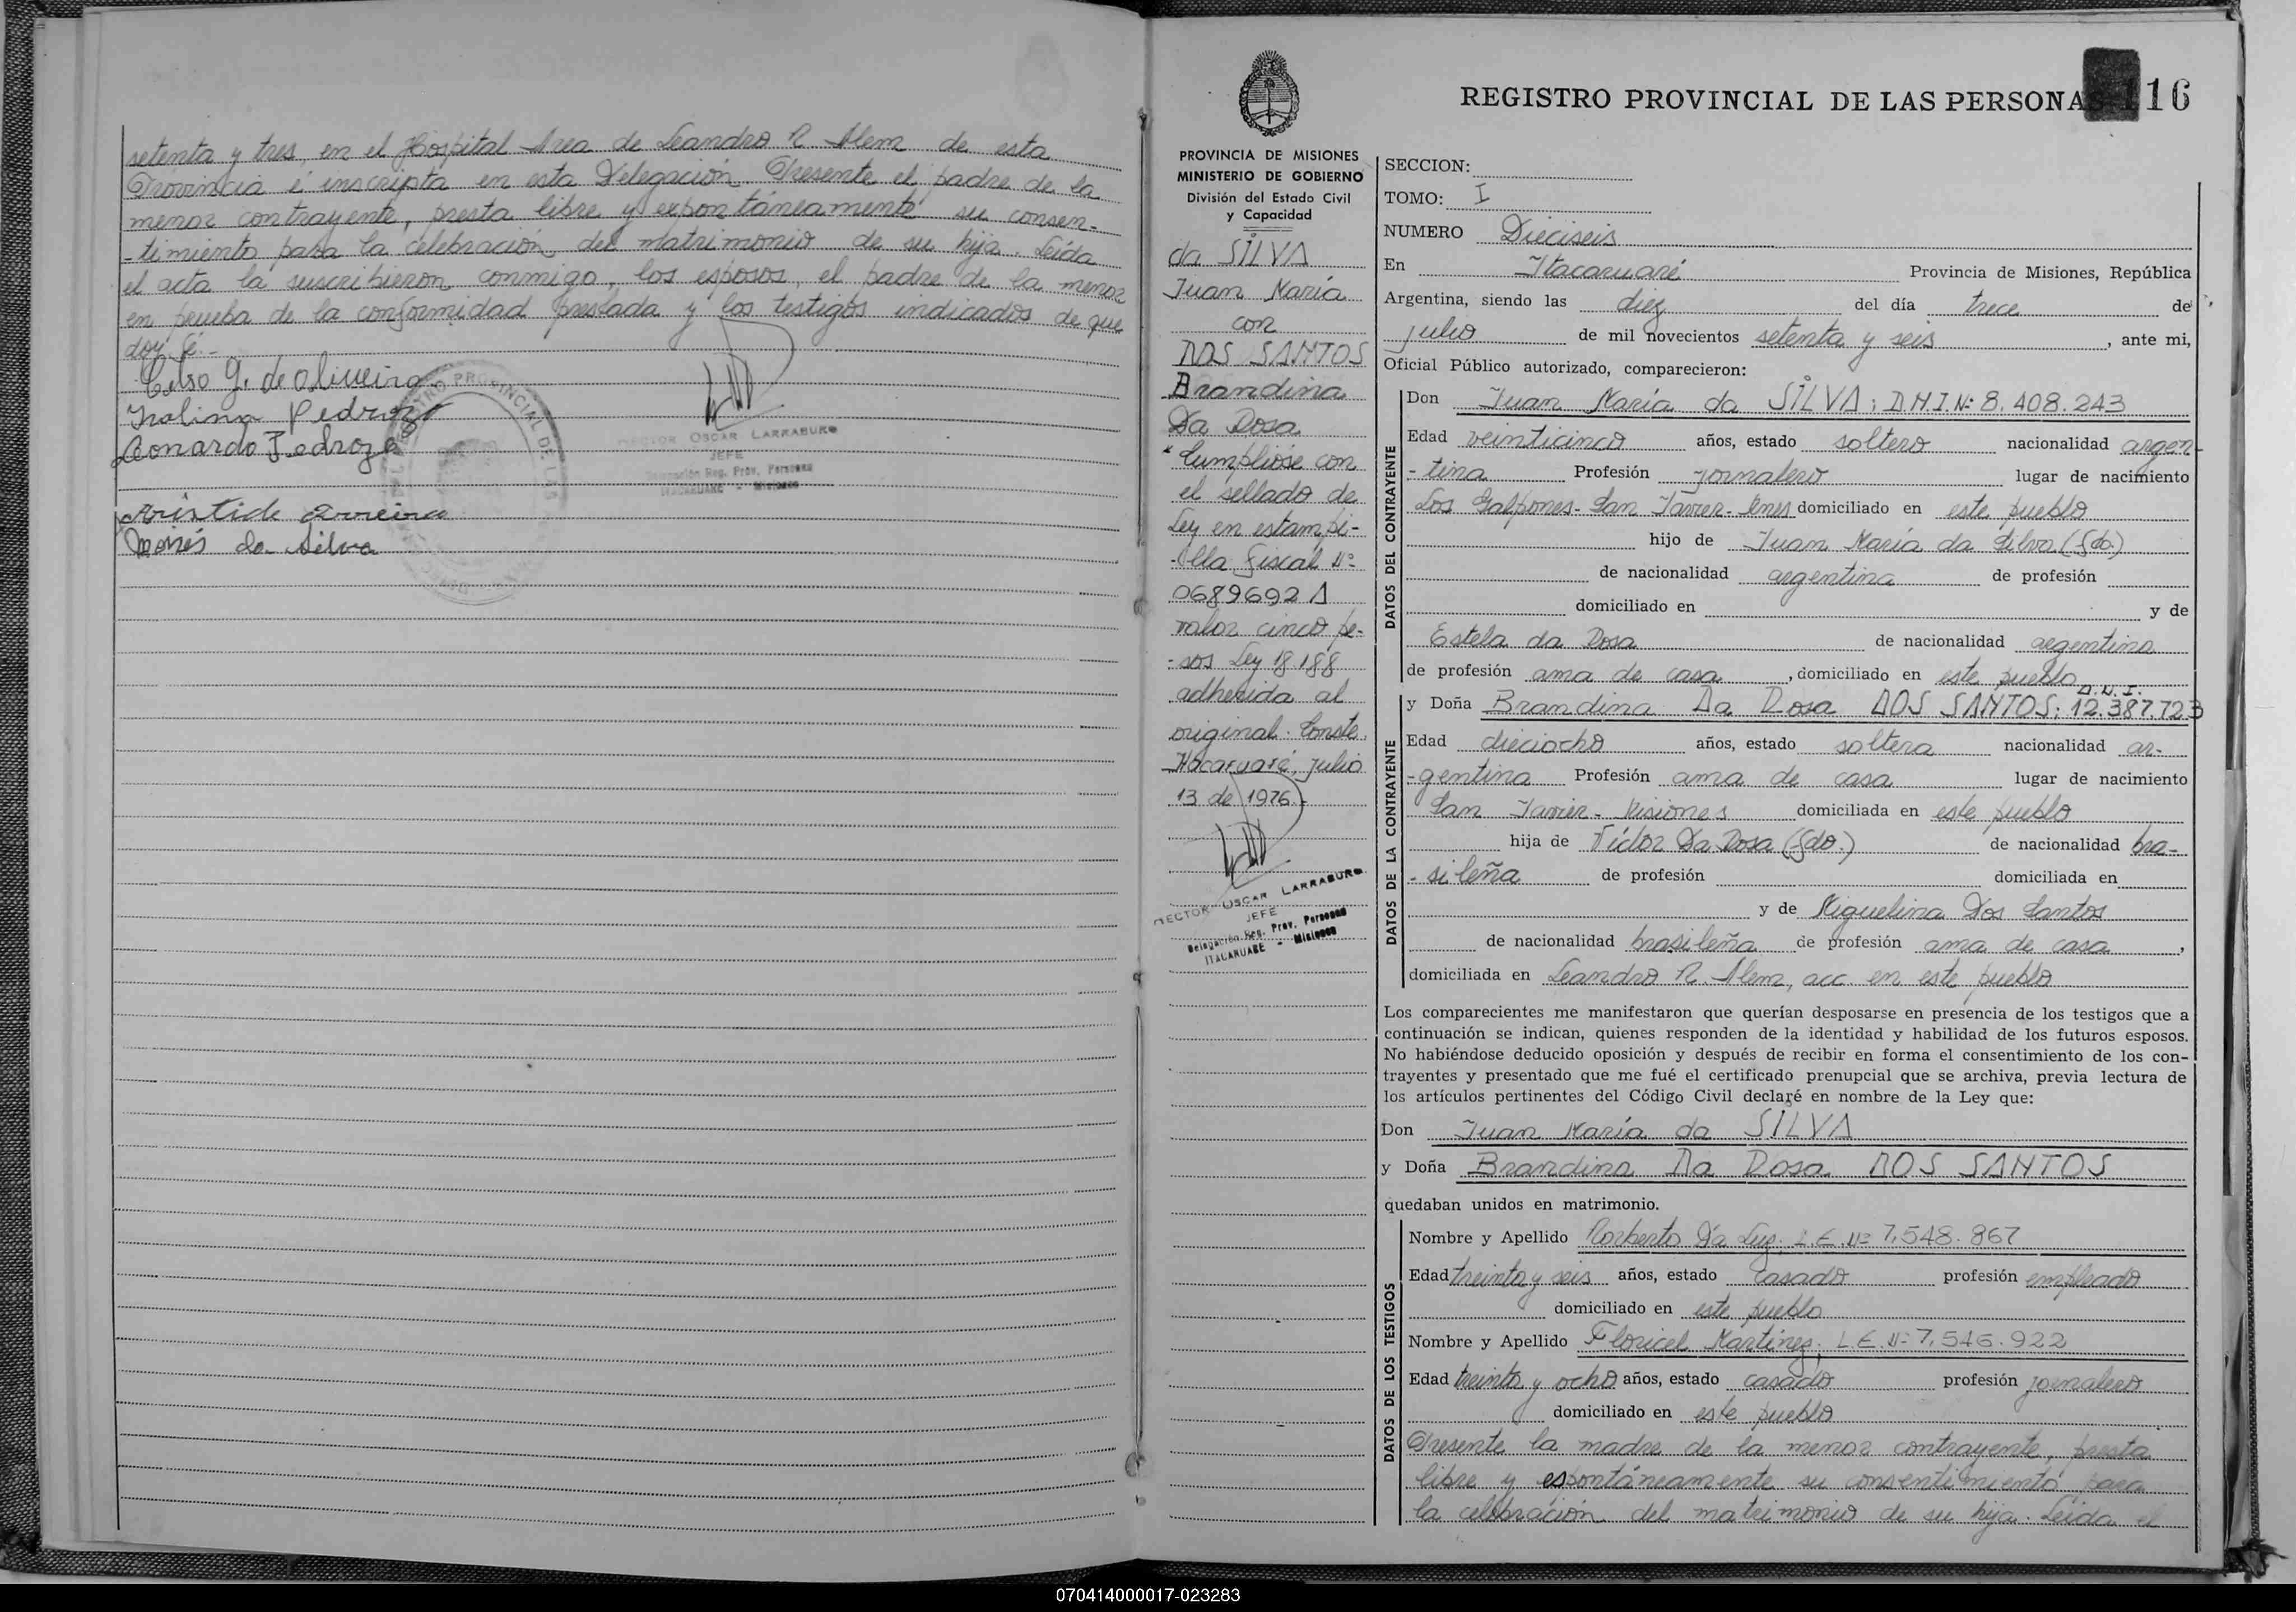 setenta y tres, en el Hospital Area de Leandro N. Alem de esta
Provincia é inscripta en esta Delegación. Presente el padre de la
menor contrayente, presta libre y expontáneamente su consen-
-timiento para la celebración del matrimonio de su hija. Leída
el acta la suscribieron conmigo, los esposos, el padre de la menor
en prueba de la conformidad prestada y los testigos indicados de que
doy fé.-
Celso G. de Oliveira
Italina Pedrozo
Leonardo Pedrozo
HECTOR OSCAR LARRABURO
JEFE
Delegación Reg. Prov. Personas
ITACARUARE - Misiones
Moisés da Silva
REGISTRO PROVINCIAL DE LAS PERSONAS 116
PROVINCIA DE MISIONES
MINISTERIO DE GOBIERNO
División del Estado Civil
y Capacidad
da SILVA
Juan María
con
DOS SANTOS
Brandina
Da Rosa
"Cumpliose con
el sellado de
Ley en estampi-
-lla fiscal Nº
0689692 A
valor cinco pe-
-sos Ley 18.188
adherida al
original. Conste.
Itacaruaré, julio
13 de 1976.-
HECTOR OSCAR LARRABURO
JEFE
Delegación Reg. Prov. Personas
ITACARUARE - Misiones
SECCION:
TOMO: I
NUMERO Dieciseis
En Itacaruaré Provincia de Misiones, República
Argentina, siendo las diez del día trece de
julio de mil novecientos setenta y seis, ante mi,
Oficial Público autorizado, comparecieron:
DATOS DEL CONTRAYENTE
Don Juan María da SILVA; D.N.I. Nº 8.408.243
Edad veinticinco años, estado soltero nacionalidad argen-
-tina Profesión jornalero lugar de nacimiento
Los Galpones- San Javier- Mnes domiciliado en este pueblo
hijo de Juan María da Silva (fdo.)
de nacionalidad argentina de profesión
domiciliado en y de
Estela da Rosa de nacionalidad argentina
de profesión ama de casa, domiciliado en este pueblo
DATOS DE LA CONTRAYENTE
D.N.I.
y Doña Brandina Da Rosa DOS SANTOS; 12.387.723
Edad dieciocho años, estado soltera nacionalidad ar-
-gentina Profesión ama de casa lugar de nacimiento
San Javier- Misiones domiciliada en este pueblo
hija de Víctor Da Rosa (fdo.) de nacionalidad bra-
-sileña de profesión domiciliada en
y de Miguelina Dos Santos
de nacionalidad brasileña de profesión ama de casa,
domiciliada en Leandro N. Alem, acc. en este pueblo
Los comparecientes me manifestaron que querían desposarse en presencia de los testigos que a
continuación se indican, quienes responden de la identidad y habilidad de los futuros esposos.
No habiéndose deducido oposición y después de recibir en forma el consentimiento de los con-
trayentes y presentado que me fué el certificado prenupcial que se archiva, previa lectura de
los artículos pertinentes del Código Civil declaré en nombre de la Ley que:
Don Juan María da SILVA
y Doña Brandina Da Rosa DOS SANTOS
quedaban unidos en matrimonio.
DATOS DE LOS TESTIGOS
Nombre y Apellido Norberto Da Luz; L.E. Nº 7.548.867
Edad treinta y seis años, estado casado profesión empleado
domiciliado en este pueblo
Nombre y Apellido Floricel Martinez; L.E. Nº 7.546.922
Edad treinta y ocho años, estado casado profesión jornalero
domiciliado en este pueblo
Presente la madre de la menor contrayente, presta
libre y espontáneamente su consentimiento para
la celebración del matrimonio de su hija. Leída el
070414000017-023283